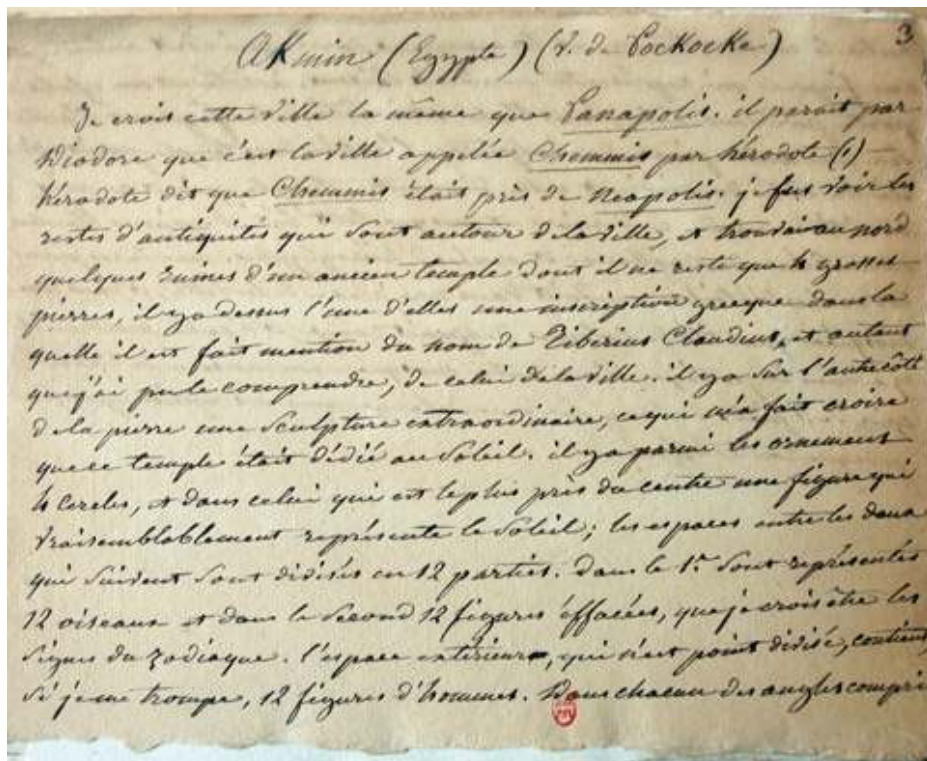 3
Akmin (Egypte) (V. de Pockocke)
Je crois cette ville la même que Panapolis. il parait par
Diodore que c'est la ville appelée Chemmis par hérodote (1)
hérodote dit que Chemmis était près de Neapolis. je fus voir les
restes d'antiquités qui sont autour de la ville, et trouvai au nord
quelques ruines d'un ancien temple dont il ne reste que 4 grosses
pierres, il y a dessus l'une d'elles une inscription grecque dans la
quelle il est fait mention du nom de Tiberius Claudius, et autant
que j'ai pu le comprendre, de celui de la ville. il y a sur l'autre côté
de la pierre une sculpture extraordinaire, ce qui m'a fait croire
que ce temple était dédié au soleil. il y a parmi les ornements
4 cercles, et dans celui qui est le plus près du centre une figure qui
vraisemblablement représente le soleil; les espaces entre les deux
qui suivent sont divisés en 12 parties. dans le 1er. sont représentés
12 oiseaux et dans le second 12 figures éffacées, que je crois être les
signes du zodiaque. l'espace extérieur, qui n'est point divisé, contient
si je me trompe, 12 figures d'hommes. Dans chacun des angles compri